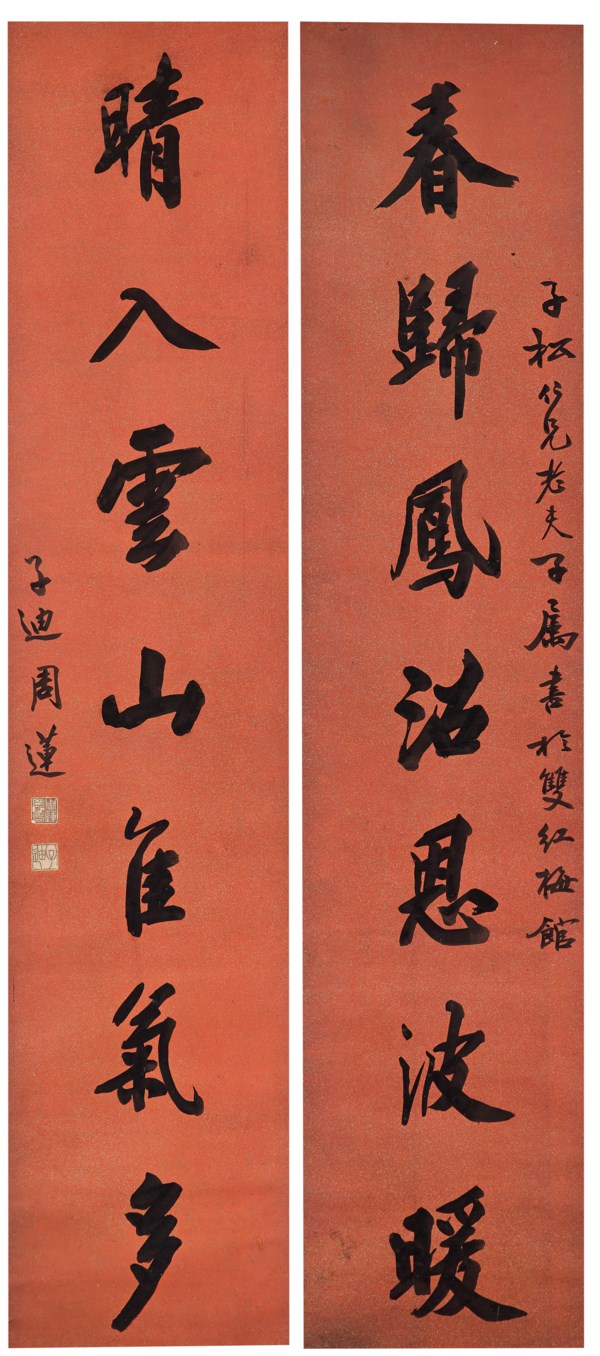 子松仁兄老夫子屬書於雙紅梅館
春歸鳳沼恩波暖
晴入雲山佳氣多
子迪周蓮